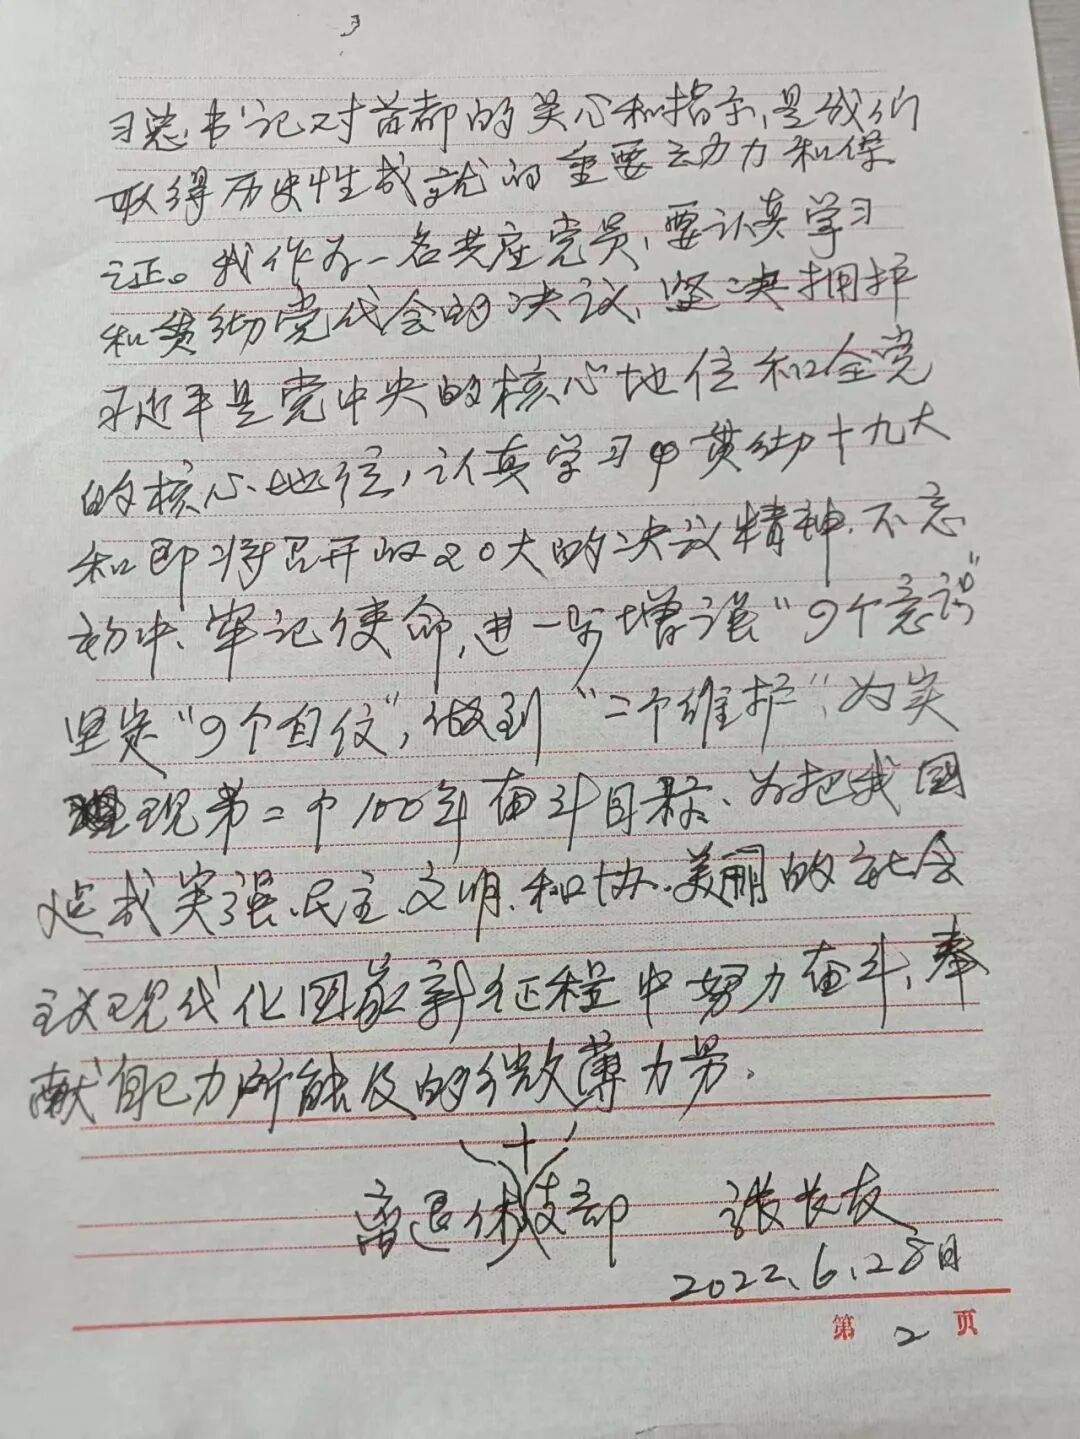 习总书记对首都的关心和指示,是我们
取得历史性成就的重要动力和保
证。我作为一名共产党员,要认真学习
和贯彻党代会的决议,坚决拥护
习近平是党中央的核心地位和全党
的核心地位,认真学习贯彻十九大
和即将召开的20大的决议精神.不忘
初中、牢记使命,进一步增强"9个意识"
坚定"9个自信",做到"二个维护",为实
现第二个100年奋斗目标、为把我国
建成富强、民主、文明、和协、美丽的社会
主义现代化国家新征程中努力奋斗,奉
献自己力所能及的微薄力量.
十
离退休支部 张长友
2022、6、28日
第 2 页